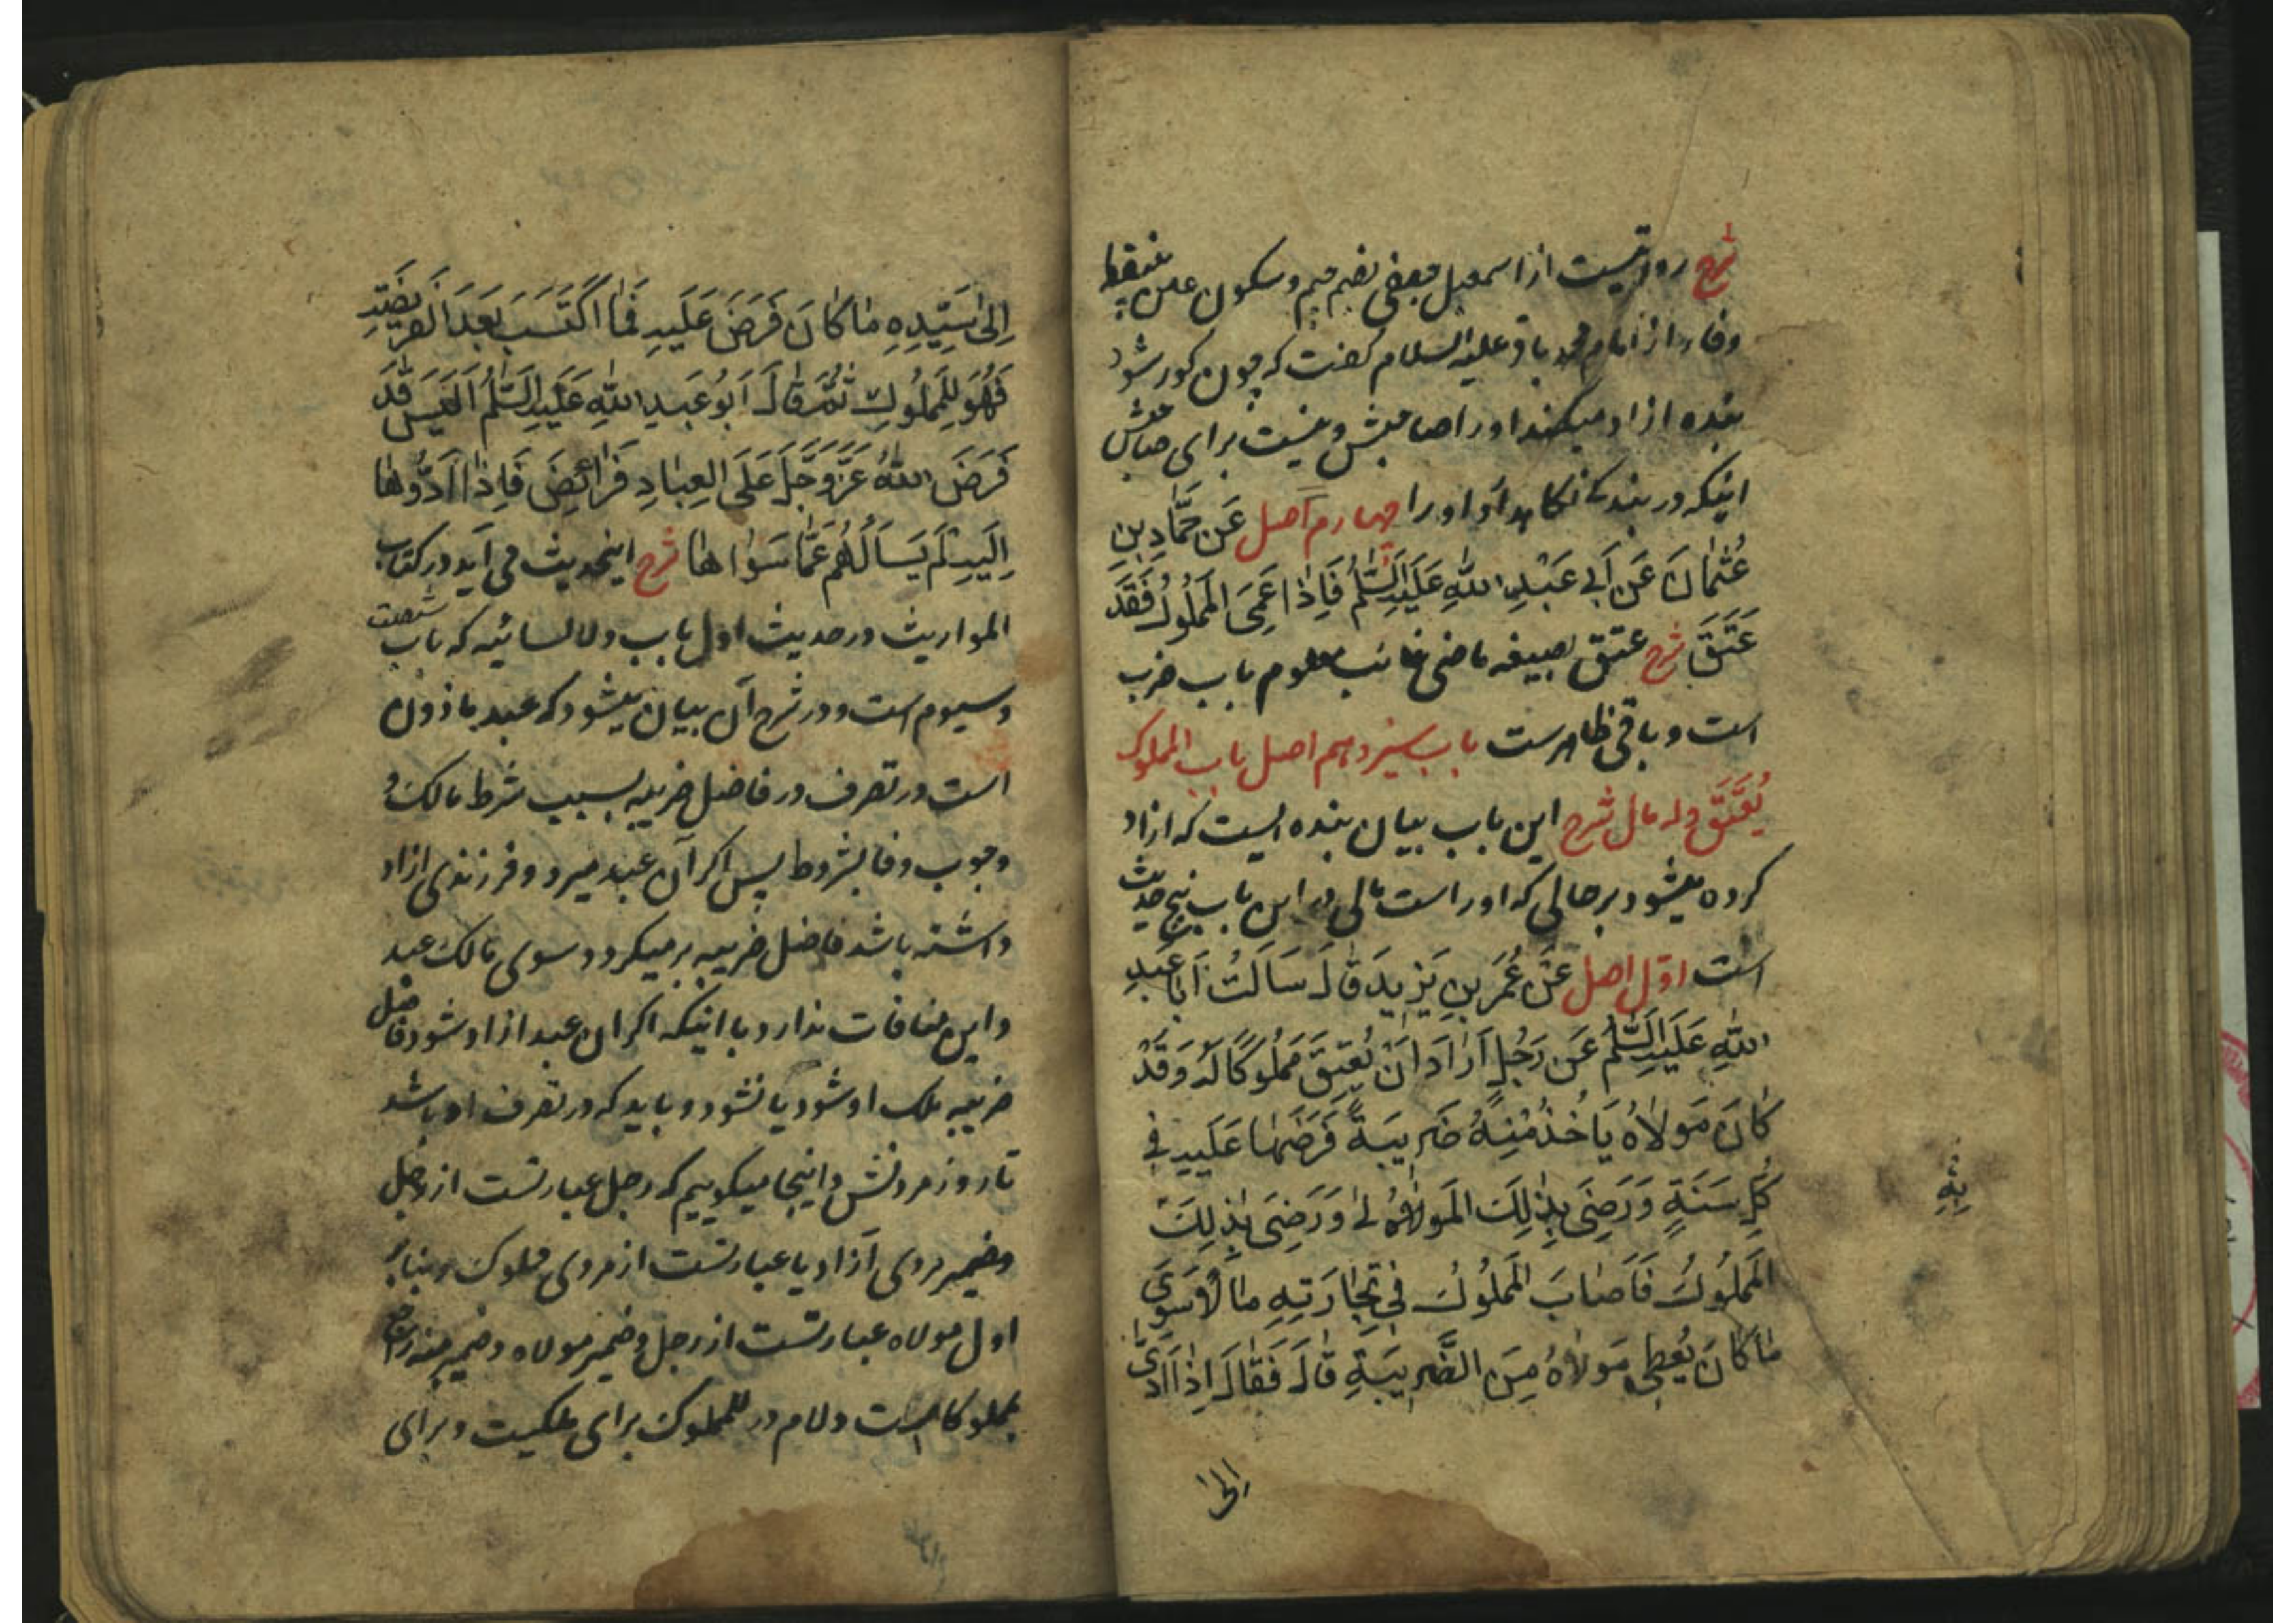 شرح روایتست از اسمعیل جعفی بضم جیم و سکون عین بینقطه
وفا و را از امام محمد باقر علیه السلام گفت که چون کور شود
بنده آزاد میکند او را صاحبش و نیست برای صاحبش
اینکه در بندگی نگاهدارد او را چهارم اصل عَن حَمَّادِ بنِ
عُثمانَ عَن اَبی عَبْدِ اللّٰهِ عَلَیهِ السَّلٰمُ فَاِذٰا عَمِیَ المَملُوکُ فَقَد
عَتَقَ شرح عتق بصیغه ماضی غائب معلوم باب ضرب
است و باقی ظاهرست باب سیزدهم اصل باب المملوک
یُعْتَقُ وله مال شرح این باب بیان بنده ایست که ازاد
کرده میشود بر حالی که او راست مالی در این باب پنج حدیث
است اوّل اصل عَن عُمَرَ بنِ یَزِیدَ قٰالَ سَاَلتُ اَبا عَبدِ
اللّٰهِ عَلَیهِ السَّلٰمُ عَن رَجُلٍ اَرٰادَ اَنْ یُعتِقَ مَملُوکًا لَهُ وَقَدْ
کٰانَ مَولاٰهُ یَاْخُذُ مِنهُ ضَرِیبَةً فَرَضَهٰا عَلَیهِ فِی
کُلِّ سَنَةٍ وَرَضِیَ بِذٰلِکَ المَولٰی وَرَضِیَ بِذٰلِکَ
المَملُوکُ فَاَصٰابَ المَملُوکُ فِی تِجٰارَتِهِ مٰالاً سِوَی
مٰا کٰانَ یُعطِی مَولاٰهُ مِنَ الضَّرِیبَةِ قٰالَ فَقٰالَ اِذٰا اَدَّی
اِلیٰ
اِلیٰ سَیِّدِهِ مٰا کٰانَ فَرَضَ عَلَیهِ فَمَا اکتَسَبَ بَعدَ الفَریضَةِ
فَهُوَ لِلمَملُوکِ ثُمَّ قٰالَ اَبُو عَبدِ اللّٰهِ عَلَیهِ السَّلٰمُ اَلَیسَ قَد
فَرَضَ اللّٰهُ عَزَّ وَجَلَّ عَلَی العِبٰادِ فَرٰائِضَ فَاِذٰا اَدَّوْهٰا
اِلَیهِ لَم یَسأَلهُم عَمّٰا سَوٰاهٰا شرح اینحدیث می آید در کتاب
المواریث در حدیث اول باب ولاء السائبه که باب شصت
و سیوم است و در شرح آن بیان میشود که عبد ماذون
است در تصرف در فاضل ضریبه بسبب شرط مالک و
وجوب وفا بشروط پس اگر آن عبد میرد و فرزندی ازاد
داشته باشد فاضل ضریبه بر میگردد سوی مالک عبد
و این منافات ندارد با اینکه اگر ان عبد ازاد شود فاضل
ضریبه ملک او شود یا نشود و باید که در تصرف او باشد
تا روز مردنش و اینجا میگوییم که رجل عبارتست از رجل
و ضمیر مردی آزاد یا عبارتست از مردی مملوک و بنابر
اول مولاه عبارتست از رجل و ضمیر مولاه و ضمیر منه راجع
بمملوکا است و لام در للمملوک برای ملکیت و برای